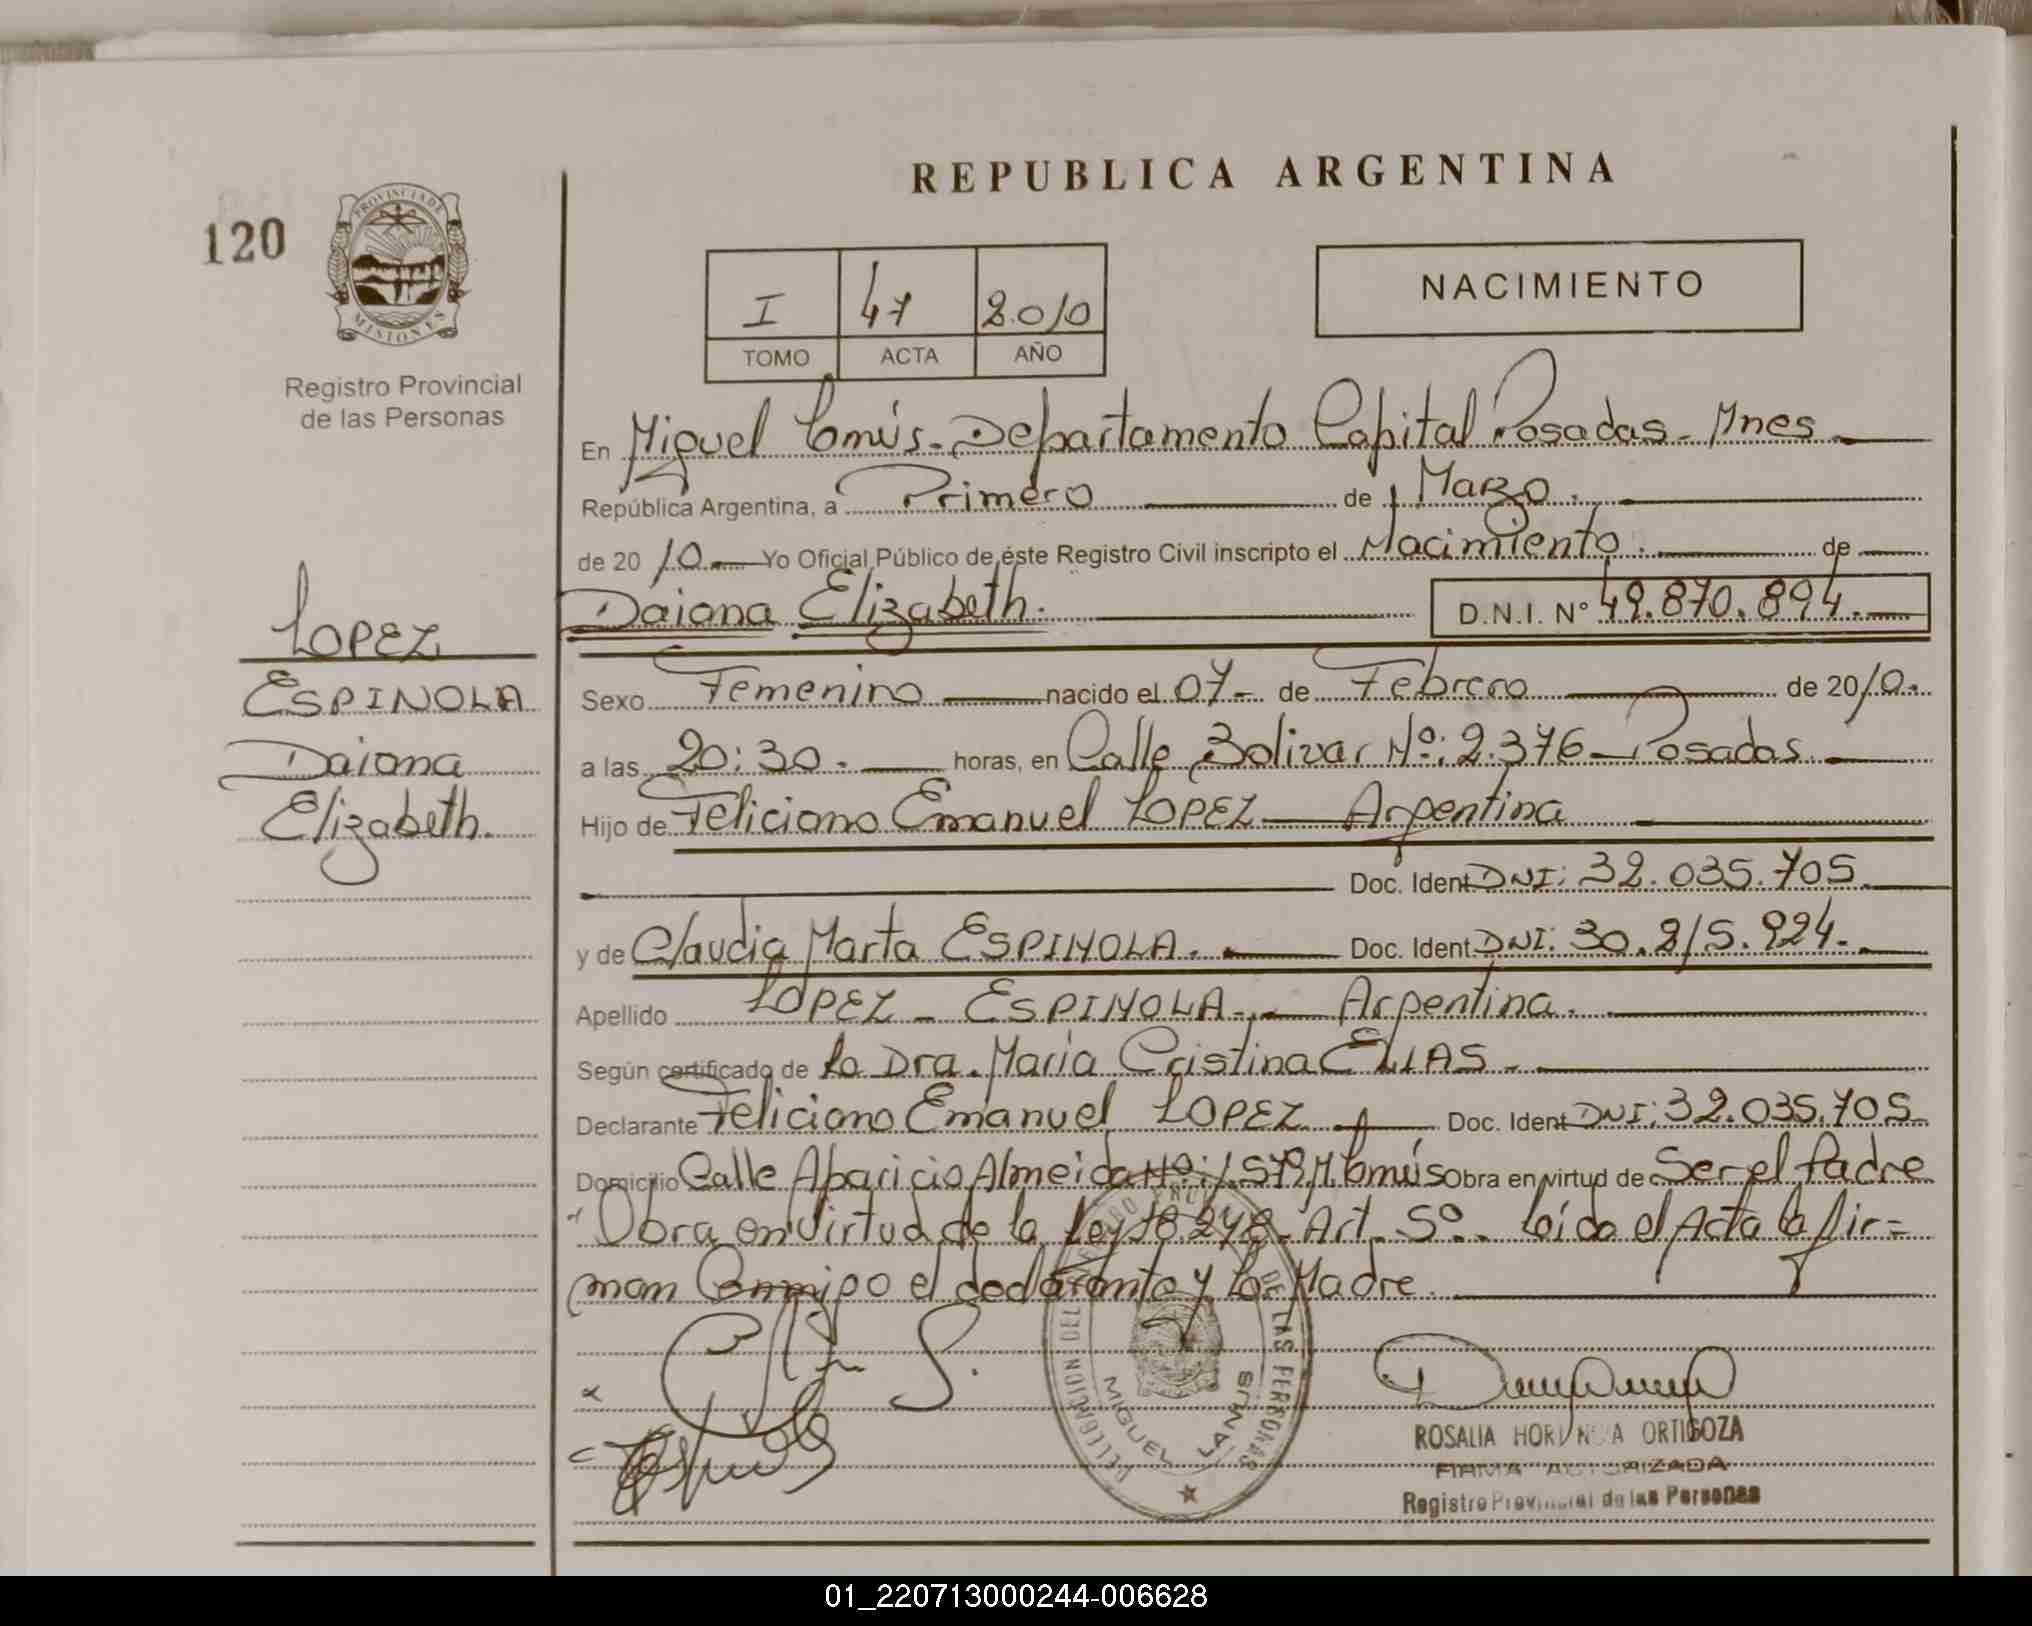 REPUBLICA ARGENTINA
120
PROVINCIA DE
MISIONES
Registro Provincial
de las Personas
I 47 2.010
TOMO ACTA AÑO
NACIMIENTO
En Miguel Lanús - Departamento Capital Posadas - Mnes
República Argentina, a Primero de Marzo.
de 2010 Yo Oficial Público de éste Registro Civil inscripto el Nacimiento. de
Daiana Elizabeth. D.N.I. Nº 49.870.894.
LOPEZ
ESPINOLA
Daiana
Elizabeth.
Sexo Femenino nacido el 07 - de Febrero de 2010.
a las 20:30. horas, en Calle Bolivar Nº: 2.376 - Posadas.
Hijo de Feliciano Emanuel LOPEZ Argentina
Doc. Ident DNI: 32.035.705
y de Claudia Marta ESPINOLA. Doc. Ident. DNI: 30.215.924.
Apellido LOPEZ - ESPINOLA - Argentina.
Según certificado de la Dra. María Cristina ELIAS.
Declarante Feliciano Emanuel LOPEZ Doc. Ident DNI: 32.035.705
Domicilio Calle Aparicio Almeida Nº: 1.579 M. Lanús Obra en virtud de Ser el Padre
Obra en Virtud de la Ley 18.248 - Art. 5º. Leída el Acta la fir=
man Conmigo el declarante y la Madre.
DELEGACION DEL REGISTRO DE LAS PERSONAS
MIGUEL LANUS
ROSALIA ORTIGOZA
FIRMA AUTORIZADA
Registro Provincial de las Personas
01_220713000244-006628